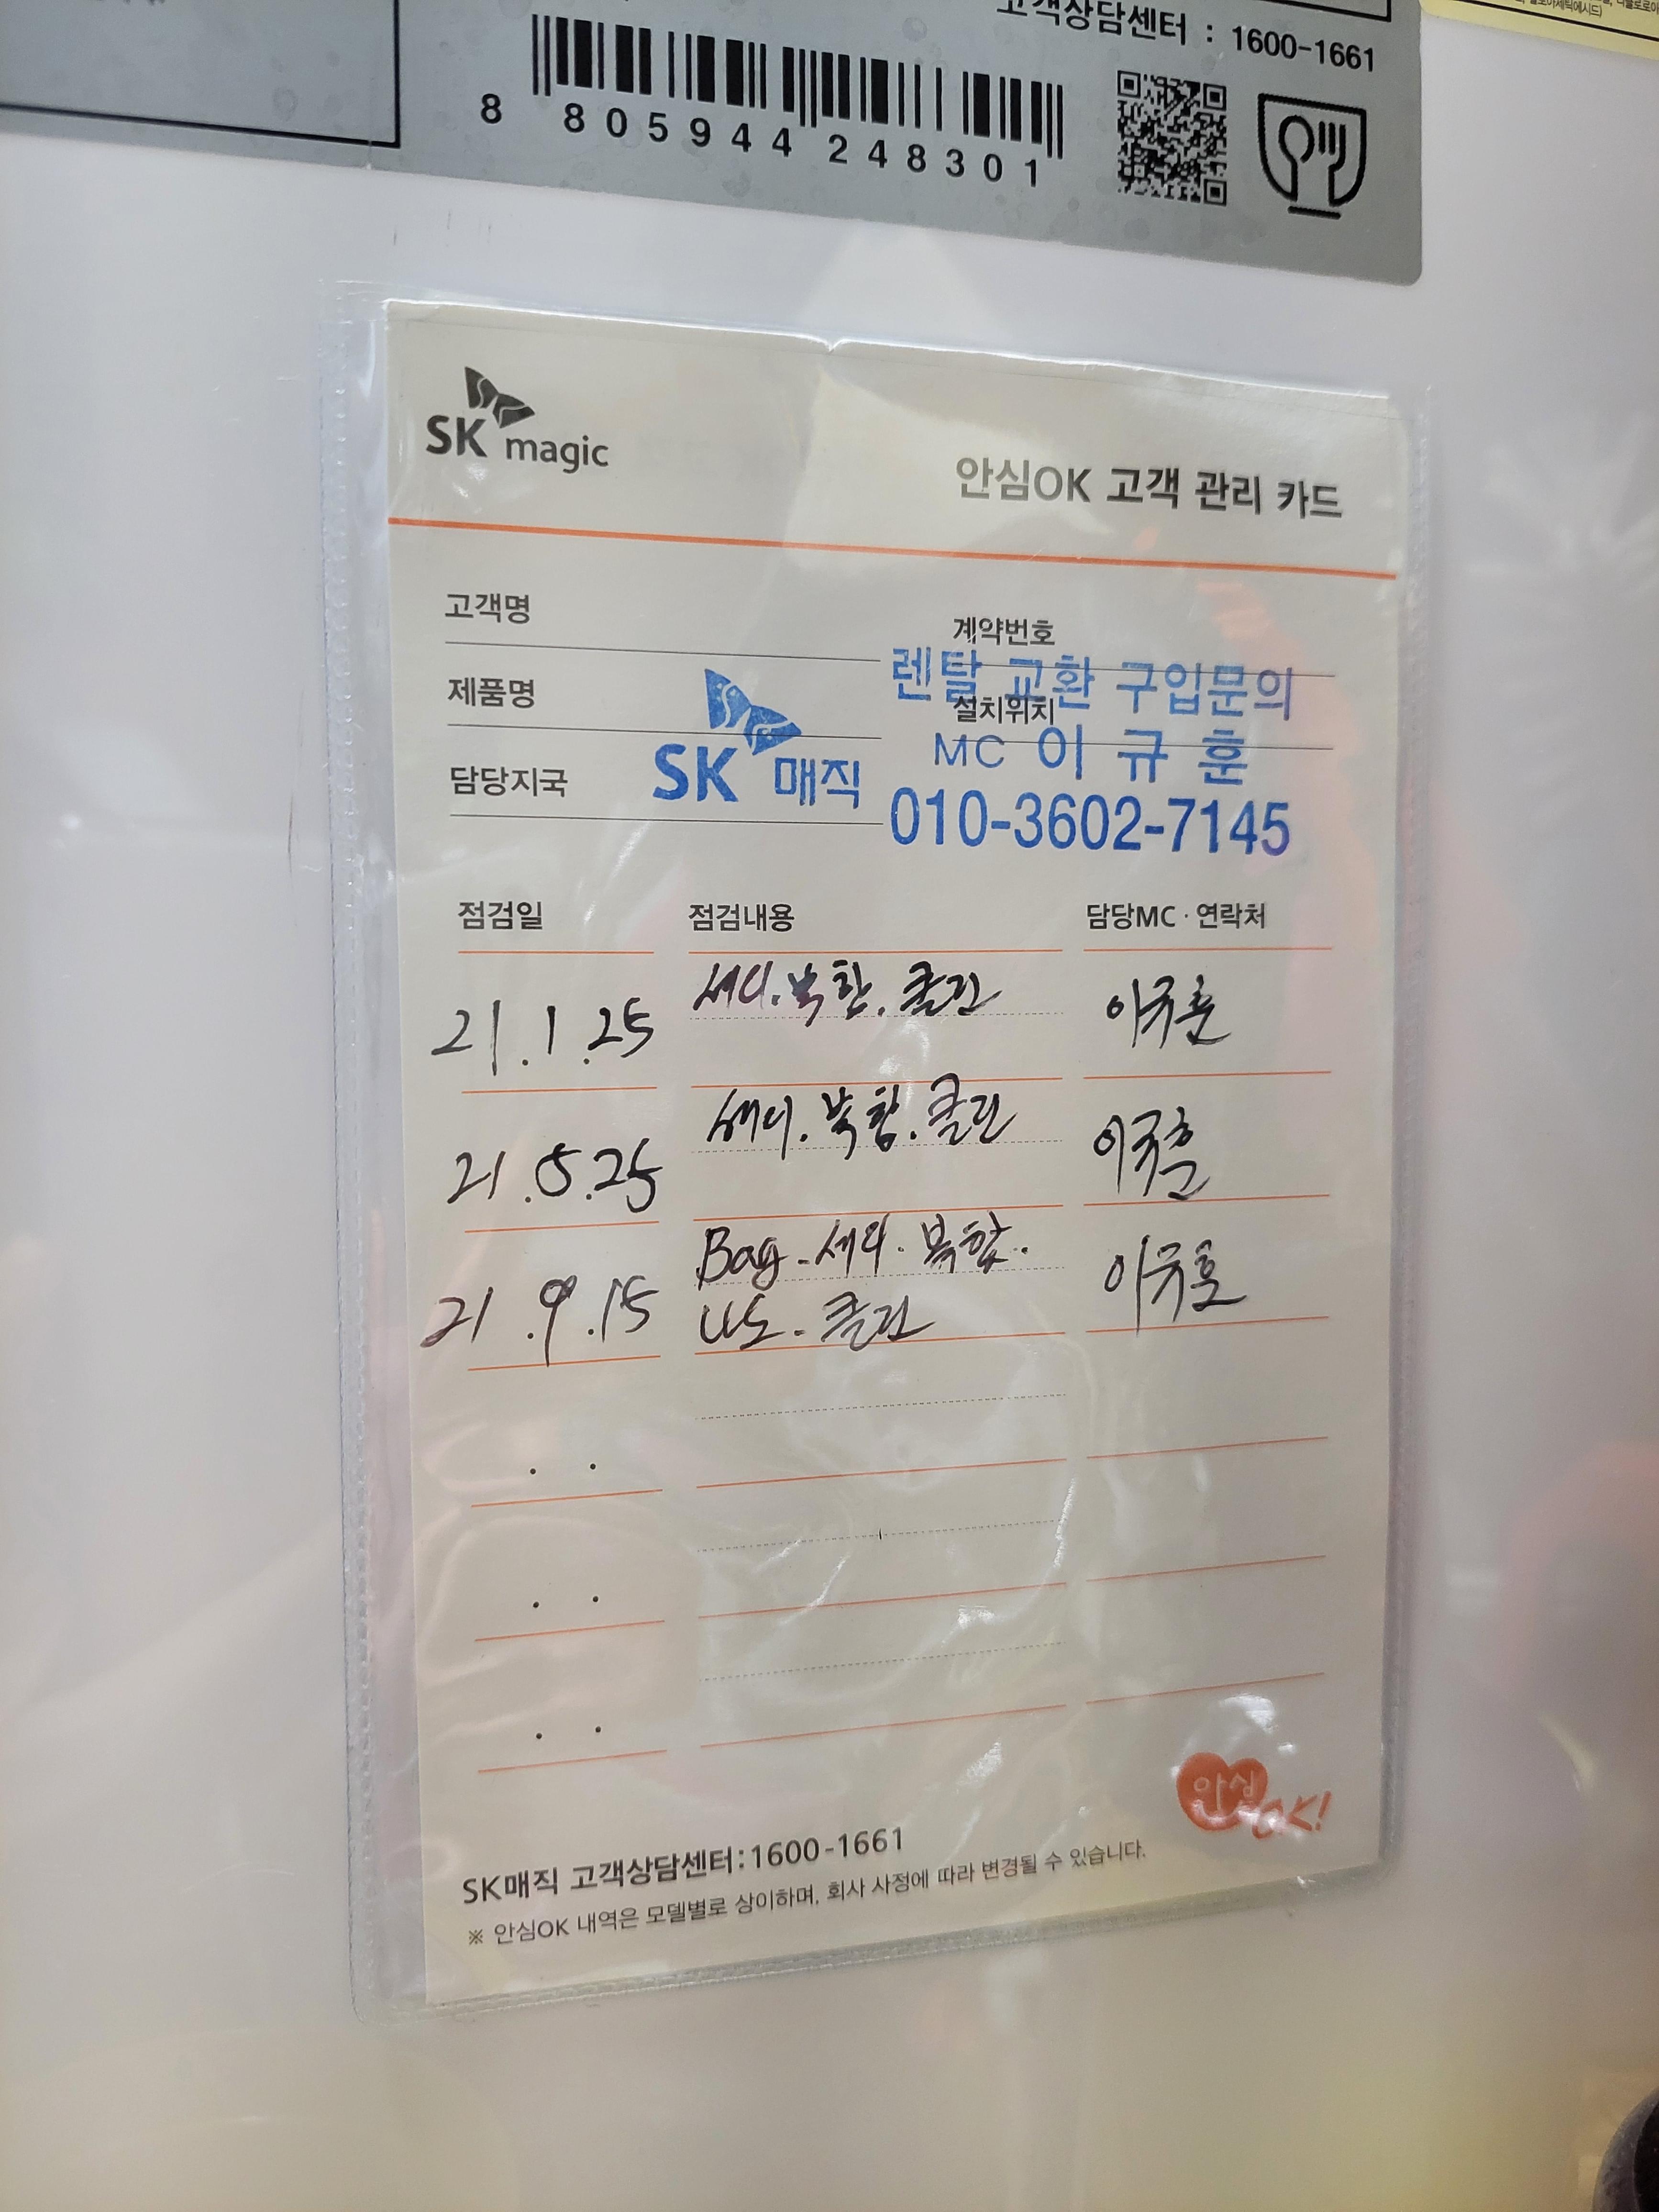 고객상담센터 : 1600-1661
8 805944 248301
SK magic
안심OK 고객 관리 카드
고객명
계약번호
렌탈 교환 구입문의
제품명
설치위치
SK 매직
MC 이규훈
담당지국
010-3602-7145
점검일 점검내용 담당MC · 연락처
21.1.25 세디.복합.클린 이규훈
21.5.25 세디.복합.클린 이규훈
21.9.15 Bag.세디.복합. 이규훈
클린
안심OK!
SK매직 고객상담센터:1600-1661
※ 안심OK 내역은 모델별로 상이하며, 회사 사정에 따라 변경될 수 있습니다.